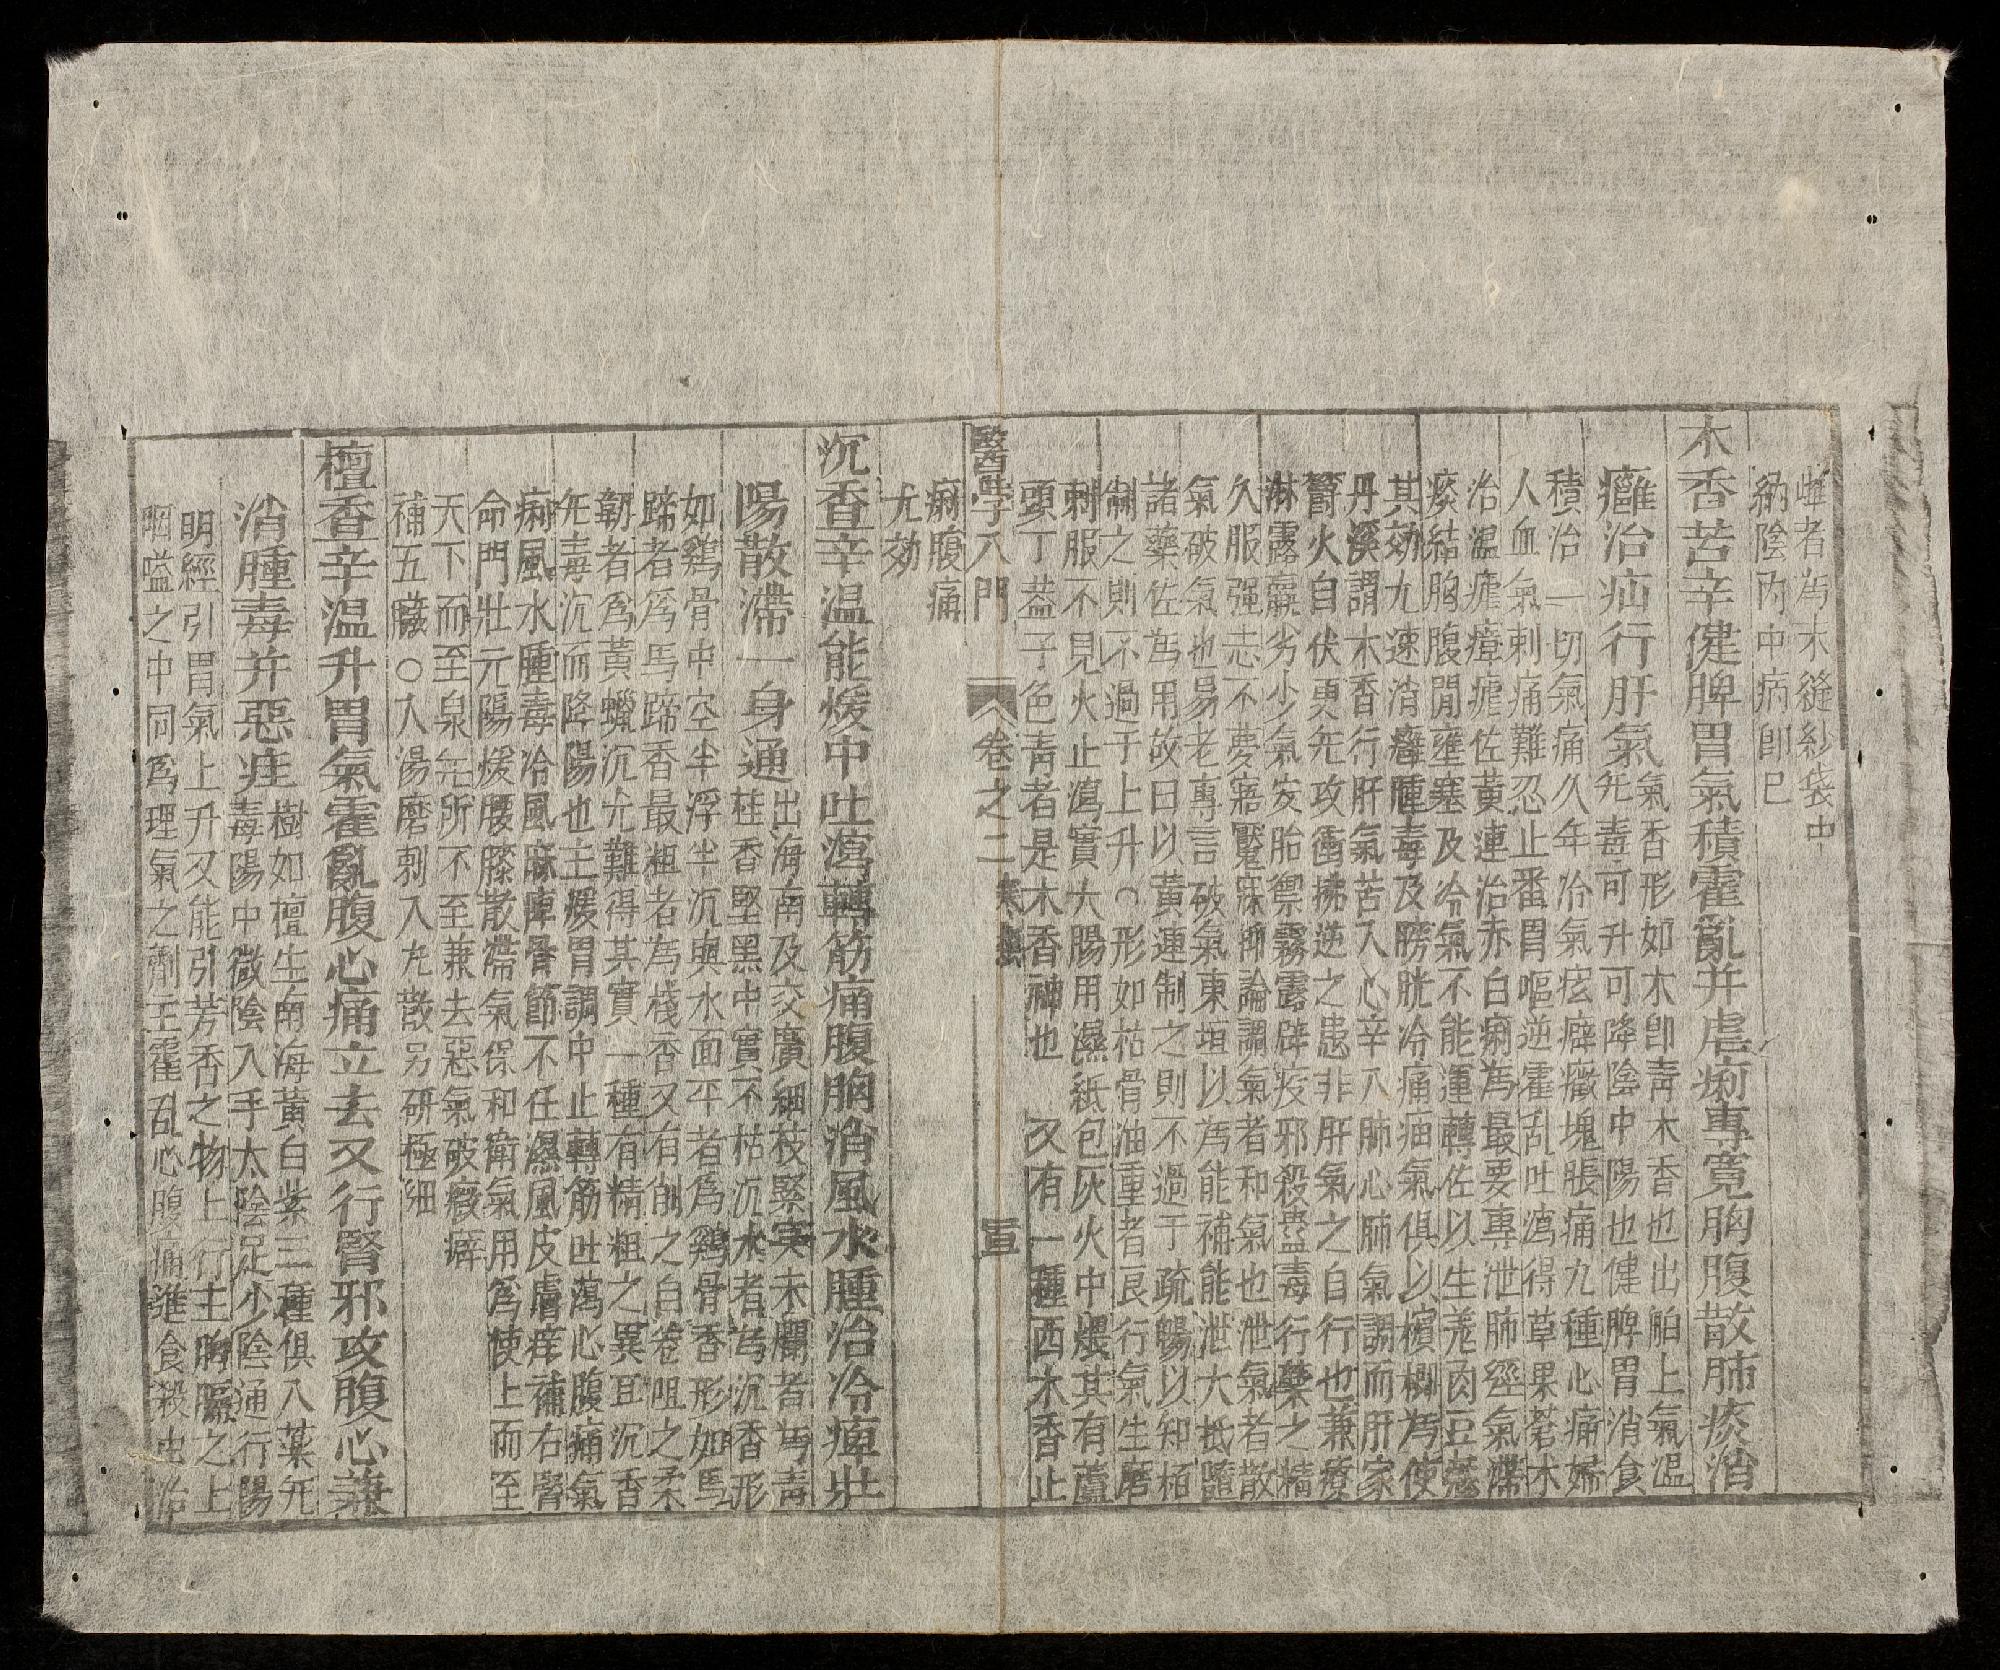 雌者为末縫紗袋中
納陰內中病卽已
木香苦辛健脾胃氣積霍亂并虐痢專寬胸腹散肺痰消
癰治疝行肝氣氣香形如木卽靑木香也出舶上氣温
无毒可升可降陰中陽也健脾胃消食
積治一切氣痛久年冷氣痃癖癥塊脹痛九種心痛婦
人血氣刺痛難忍止番胃嘔逆霍乱吐瀉得草果蒼朮
治温瘧瘴瘧佐黃連治赤白痢为最要專泄肺經氣滯
痰結胸腹間壅塞及冷氣不能運轉佐以生羌肉豆蔲
其効尤速消癰腫毒及膀胱冷痛疝氣俱以檳榔为使
丹溪謂木香行肝氣苦入心辛入肺心肺氣調而肝家
欝火自伏更无攻衝拂逆之患非肝氣之自行也兼療
淋露羸劣少氣安胎禦霧露辟疫邪殺蠱毒行藥之精
久服强志不夢寤魘寐抑論調氣者和氣也泄氣者散
氣破氣也易老專言破氣東垣以为能補能泄大抵隨
諸藥佐为用故曰以黃連制之則不過于疏暢以知栢
制之則不過于上升○形如枯骨油重者良行氣生磨
刺服不見火止瀉實大腸用濕紙包灰火中煨其有蘆
頭丁蓋子色靑者是木香神也 又有一種西木香止
醫學入門 卷之二 本草 五百
痢腹痛
尤効
沉香辛温能煖中吐瀉轉筋痛腹胸消風水腫治冷痺壯
陽散滯一身通出海南及交廣細枝緊実未欄者为靑
桂香堅黑中實不枯沉水者为沉香形
如鷄骨中空半浮半沉與水面平者爲鷄骨香形如馬
蹄者爲馬蹄香最粗者为棧香又有削之自卷咀之柔
韌者爲黃蠟沉尤難得其實一種有精粗之異耳沉香
无毒沉而降陽也主煖胃調中止轉筋吐瀉心腹痛氣
痢風水腫毒冷風麻痺骨節不任濕風皮膚痒補右腎
命門壯元陽煖腰膝散滯氣保和衛氣用爲使上而至
天下而至泉无所不至兼去惡氣破癥癖
補五臟○入湯磨刺入丸散另研極細
檀香辛温升胃氣霍亂腹心痛立去又行腎邪攻腹心兼
消腫毒并惡疰樹如檀生南海黃白紫三種俱入藥无
毒陽中微陰入手太陰足少陰通行陽
明經引胃氣上升又能引芳香之物上行主胸膈之上
咽嗌之中同爲理氣之劑主霍乱心腹痛進食殺虫治